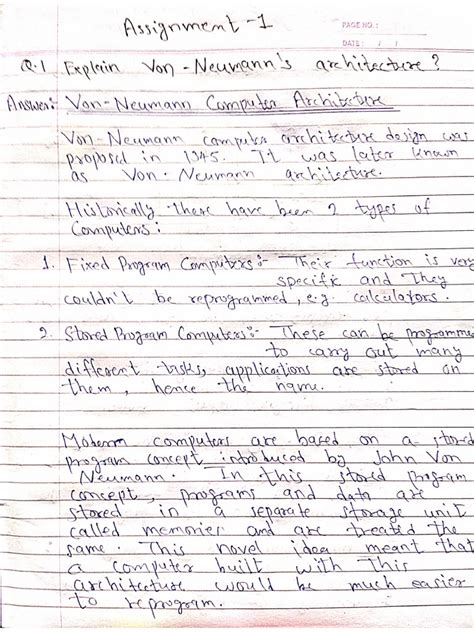 Assignment - 1
PAGE NO.:
DATE: / /
Q.1 Explain Von-Neumann's architecture?
Answer: Von-Neumann Computer Architecture
Von-Neumann computer architecture design was
proposed in 1945. It was later known
as Von-Neumann architecture.
Historically there have been 2 types of
Computers:
1. Fixed Program Computers:- Their function is very
specific and They
couldn't be reprogrammed, e.g. calculators.
2. Stored Program Computers:- These can be programme
to carry out many
different tasks, applications are stored on
them, hence the name.
Modern computers are based on a stored
program concept introduced by John Von
Neumann. In this stored program
concept, programs and data are
stored in a separate storage unit
called memories and are treated the
same. This novel idea meant that
a computer built with This
architecture would be much easier
to reprogram.